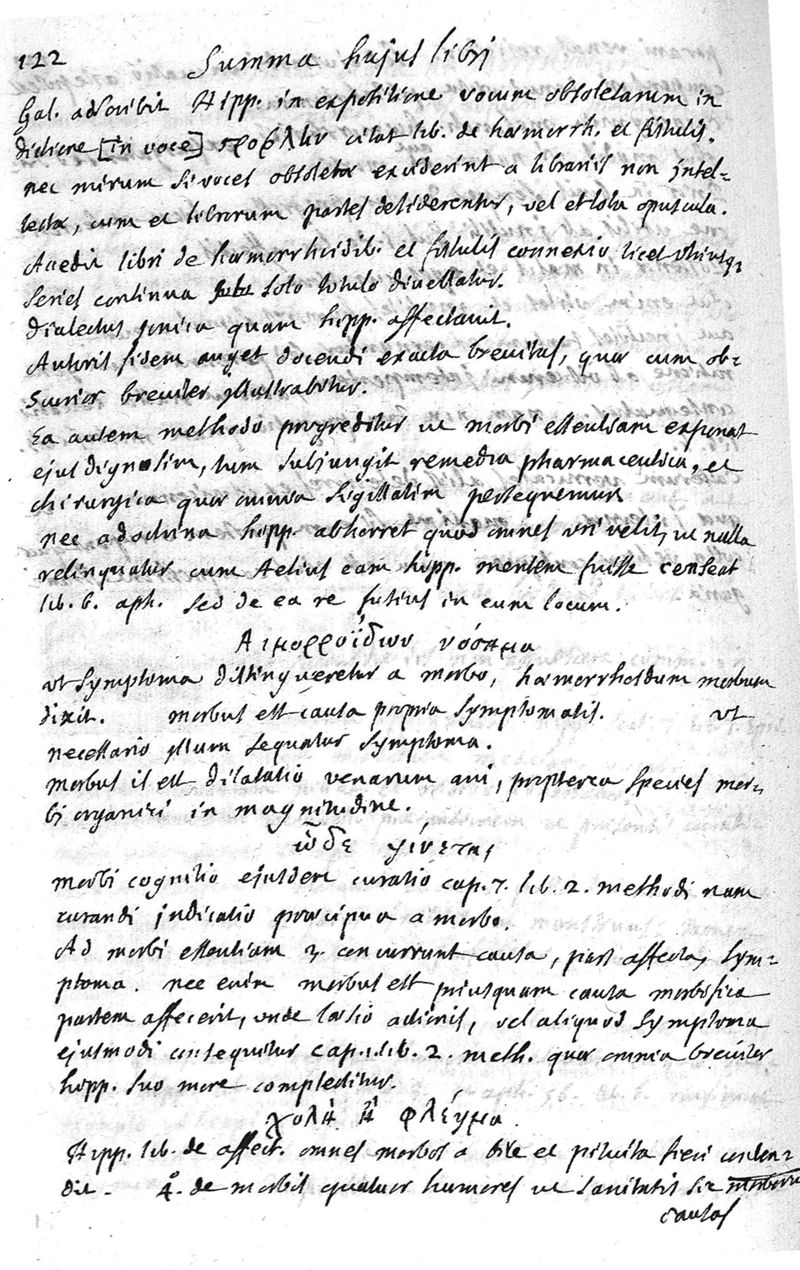 122
Summa hujus libri
Gal. adscribit Hipp. in expositione vocum obsoletarum in
dictione [in voce] citat lib. de hæmorrh. et fistulis.
nec mirum si voces obsoletæ exciderint a librariis non intel-
lectæ, cum et librorum partes desiderentur, vel et tota opuscula.
Accedit libri de hæmorrhoidib. et fistulis connexio licet utriusq;
series continua solo titulo divellatur.
dialectus jonica quam hipp. affectavit.
Autoris fidem auget docendi exacta brevitas, quæ cum ob-
scurior breviter illustrabitur.
Ea autem methodo progreditur ut morbi essentiam exponat
ejus dignosim, tum subjungit remedia pharmaceutica, et
chirurgica quæ omnia sigillatim persequemur
nec a doctrina hipp. abhorret quod omnes uri velit, ut nulla
relinquatur cum Aetius eam hipp. mentem fuisse censeat
lib. 6. aph. sed de ea re fusius in eum locum.
Αἱμορροΐδων νόσημα
ut symptoma distingueretur a morbo, hæmorrhoidum morbum
dixit. morbus est causa propria symptomatis. ut
necessario illum sequatur symptoma.
morbus is est dilatatio venarum ani, propterea species mor-
bi organici in magnitudine.
ὧδε γίνεται
morbi cognitio ejusdem curatio cap. 7. lib. 2. methodi nam
curandi indicatio præcipua a morbo.
Ad morbi essentiam 3. concurrunt causa, pars affecta, sym-
ptoma. nec enim morbus est priusquam causa morbifica
partem affecerit, unde læsio actionis, vel aliquod symptoma
ejusmodi consequitur cap. 1. lib. 2. meth. quæ omnia breviter
hipp. suo more complectitur.
χολὴ ἢ φλέγμα
Hipp. lib. de affect. omnes morbos a bile et pituita fieri conten-
dit. 4°. de morbis quatuor humores ut sanitatis sic morborum
causas